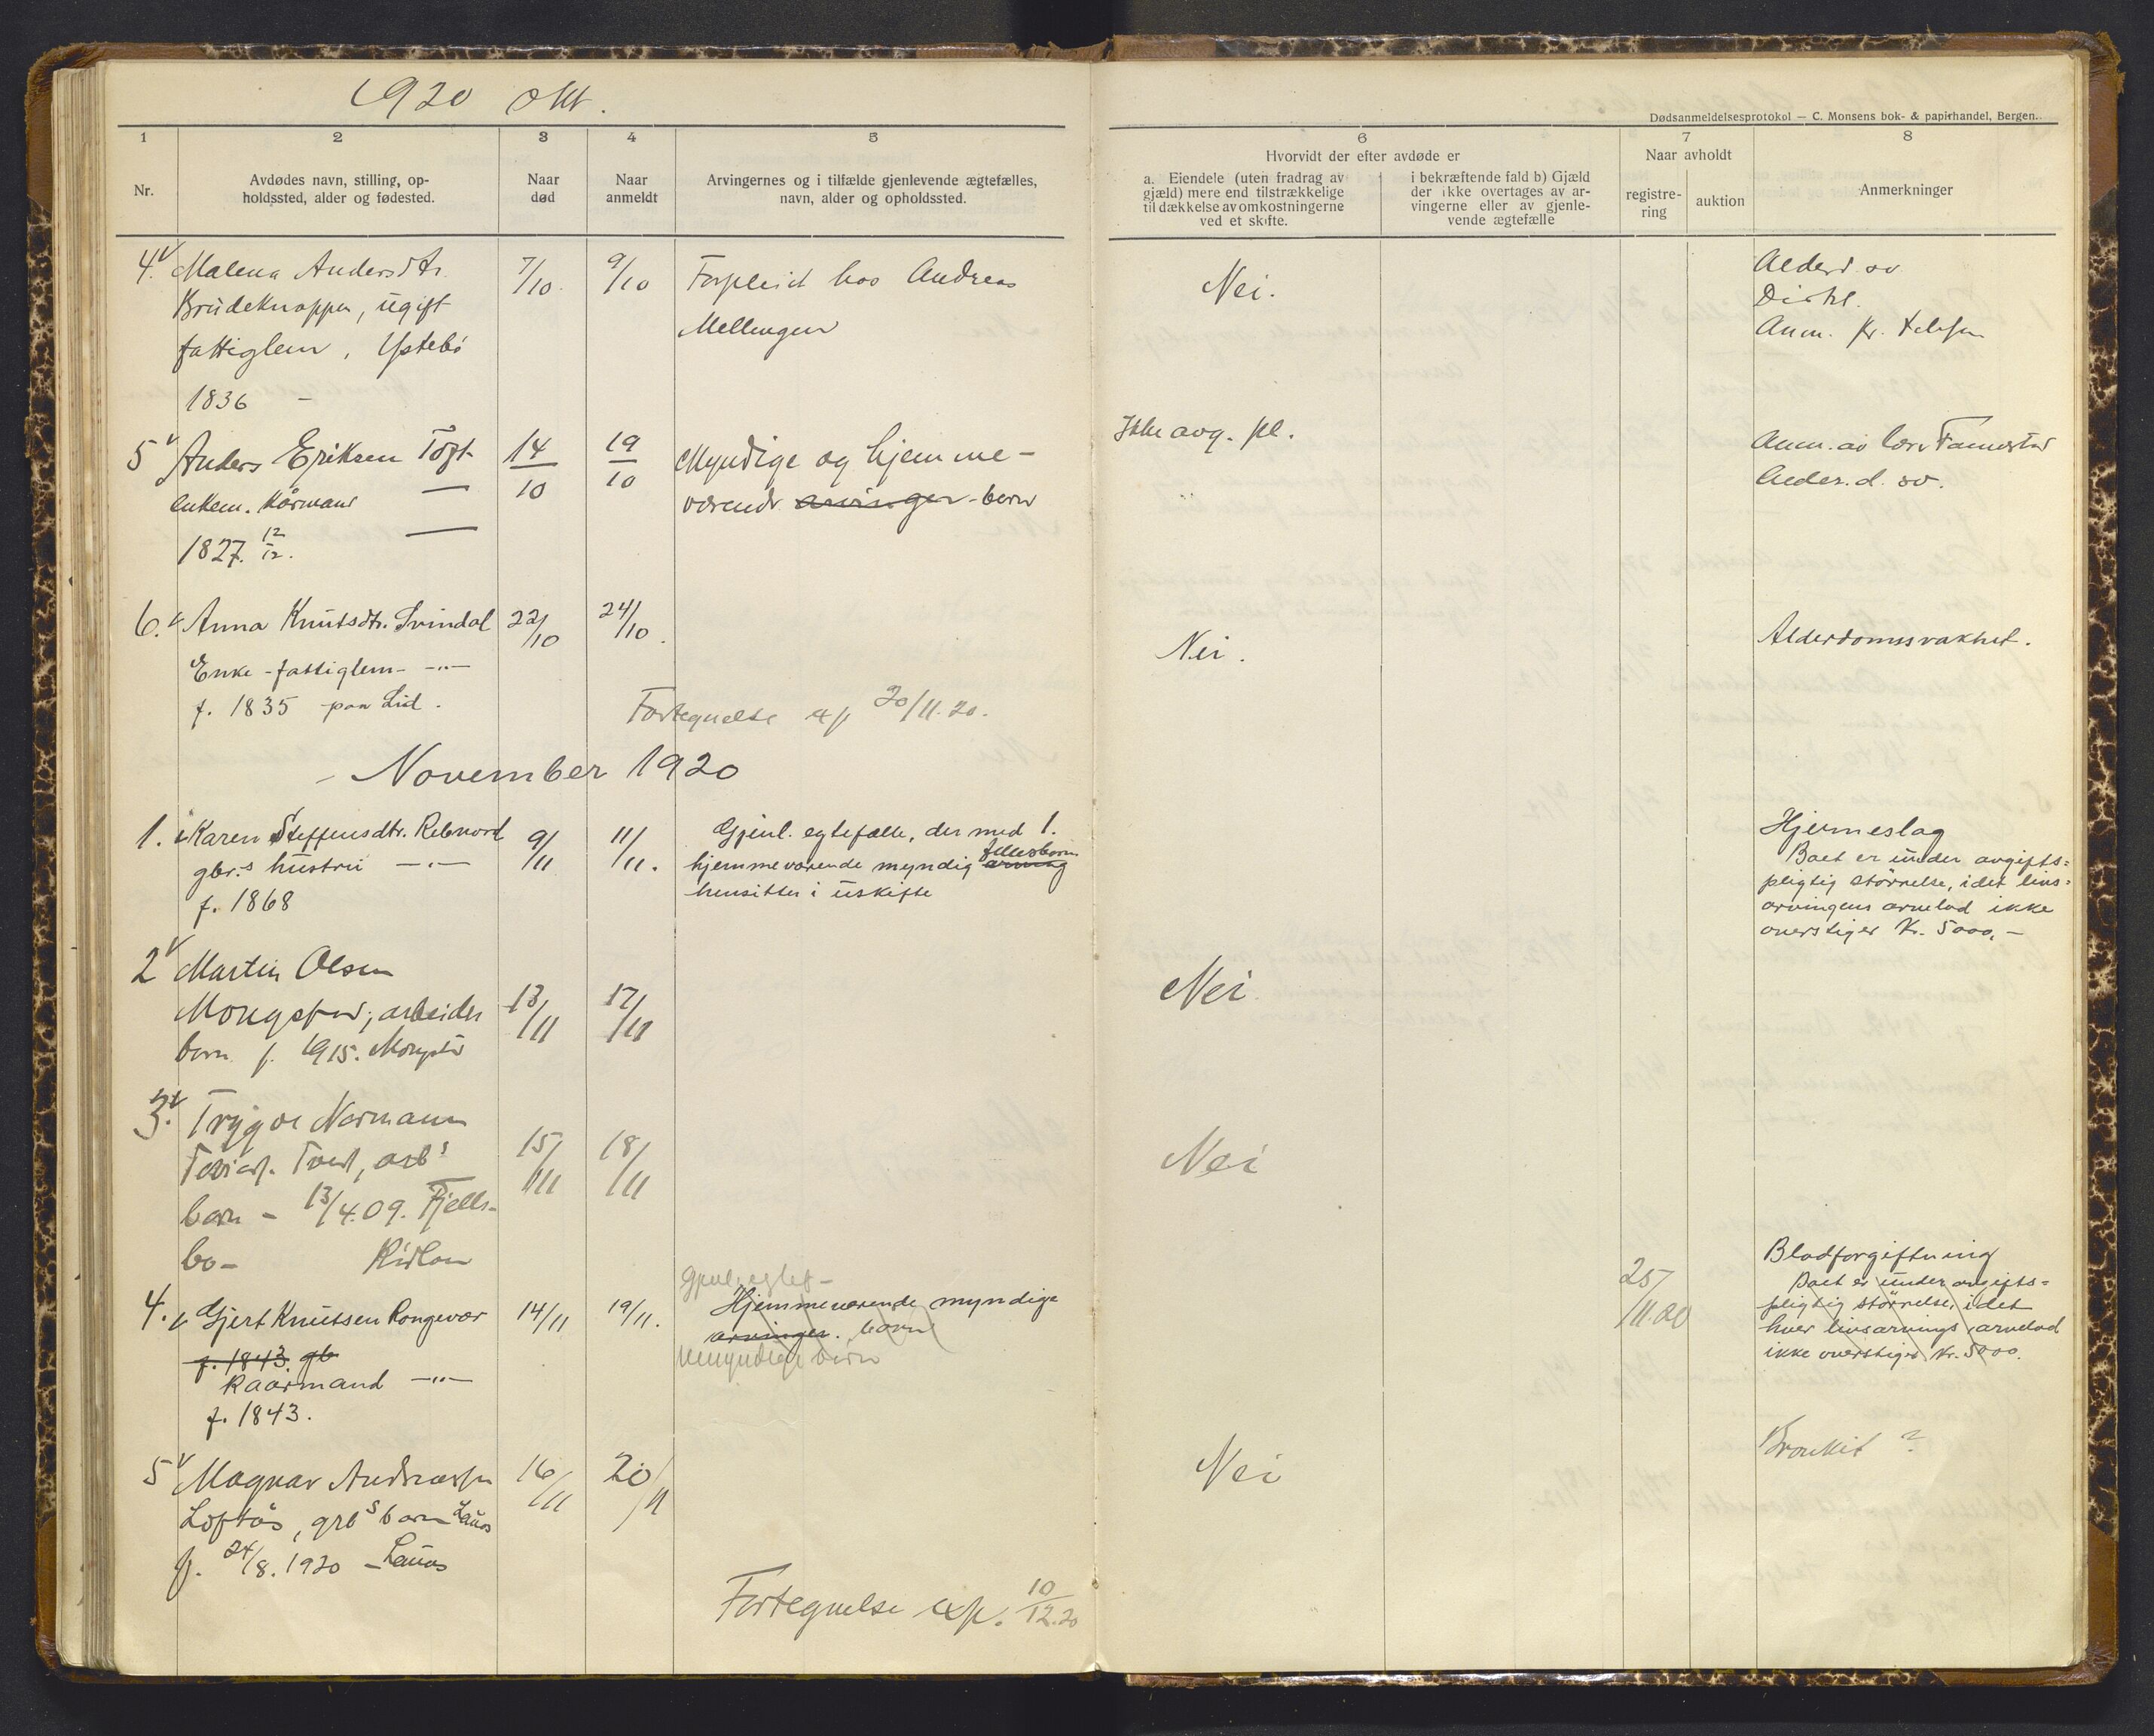 1920 Okt.
Dødsanmeldelsesprotokol — C. Monsens bok- & papirhandel, Bergen.
1 2 3 4 5 6 7 8
Nr.
Avdødes navn, stilling, op-
holdssted, alder og fødested.
Naar
død
Naar
anmeldt
Arvingernes og i tilfælde gjenlevende ægtefælles,
navn, alder og opholdssted.
Hvorvidt der efter avdøde er
a. Eiendele (uten fradrag av
gjæld) mere end tilstrækkelige
til dækkelse av omkostningerne
ved et skifte.
i bekræftende fald b) Gjæld
der ikke overtages av ar-
vingerne eller av gjenle-
vende ægtefælle
Naar avholdt
registre-
ring
auktion
Anmerkninger
4. Malena Andersdtr.
Brudeknappen, ugift
fattiglem, Ystebö
1836 -
7/10
9/10
Forpleiet hos Andreas
Mellingen
Nei.
Alderd. sv.
Distr.
Anm. pr. telefon
5 Anders Eriksen Toft
enkem. kårmand —
1827. 12/12. —
14/10
19/10
Myndige og hjemme-
værende arvinger - born
Ikke avg. pl.
Anm. av lær. Fannestad
Alder. d. sv.
6. Anna Knutsdtr. Svindal
Enke - fattiglem - -"-
f. 1835 paa Lid.
22/10
24/10.
Nei.
Alderdomssvakhet.
Fortegnelse exp 20/11.20.
- November 1920
1. Karen Steffensdtr. Rebnord
gbr.s hustru -"-
f. 1868
9/11
11/11.
Gjenl. egtefælle, der med 1.
hjemmeværende myndig arving fællesbarn
hensitter i uskifte
Hjerneslag
Boet er under avgifts=
pligtig størrelse, idet livs=
arvingens arvelod ikke
overstiger Kr. 5000,-
2 Martin Olsen
Mongstad, arbeider
barn f. 1915. Mongstad
13/11
17/11
Nei
3. Trygve Normann
Tvedt, arb.s
barn - 13/4.09. Fjells-
bo-
15/11
18/11
Nei
4. Gjert Knutsen Rongevær
f. 1843. gb
Kaarmand -"-
f. 1843.
14/11
19/11.
Gjenl. egtef -
Hjemmeværende myndige
arvinger. barn
umyndige börn
25/11.20
Blodforgiftning
Boet er under avgifts=
pligtig størrelse, idet
hver livsarvings arvelod
ikke overstiger Kr. 5000.
5 Magnar Andreassen
Loftås, grbs barn Lauås
f. 24/8.1920 - Lauås
16/11
20/11
Nei
Bronkit ?
Fortegnelse exp. 10/12.20